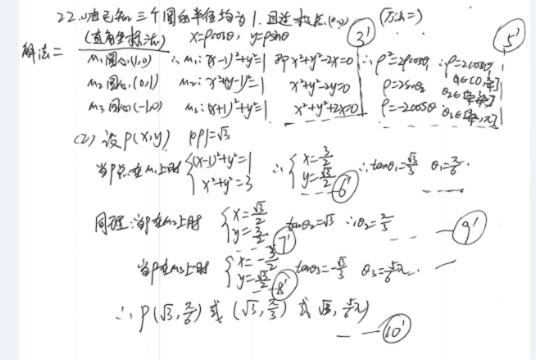 22. 由已知三个圆的半径均为1. 且过极点(0,0) (方法二)
解法二 (直角坐标法) x=ρcosθ, y=ρsinθ 3' 5'
M₁圆心(1,0) ∴M₁:(x-1)²+y²=1 即x²+y²-2x=0 ∴ρ²=2ρcosθ ∴ρ=2cosθ
M₂圆心(0,1) M₂: x²+(y-1)²=1 x²+y²-2y=0 ρ=2sinθ
M₃圆心(-1,0) M₃:(x+1)²+y²=1 x²+y²+2x=0 ρ=-2cosθ
(2) 设P(x,y) |OP|=√3
当P点在M₁上时 {(x-1)²+y²=1 x²+y²=3 ∴{x=3/2 y=√3/2 6' ∴tanθ₁=√3/3 θ₁=π/6.
同理:当P在M₂上时 {x=√3/2 y=3/2 7' tanθ₂=√3 ∴θ₂=π/3 9'
当P在M₃上时 {x=-3/2 y=√3/2 8' tanθ₃=-√3/3 θ₃=5/6π.
∴P(√3,π/6)或(√3,π/3)或(√3,5/6π)
10'